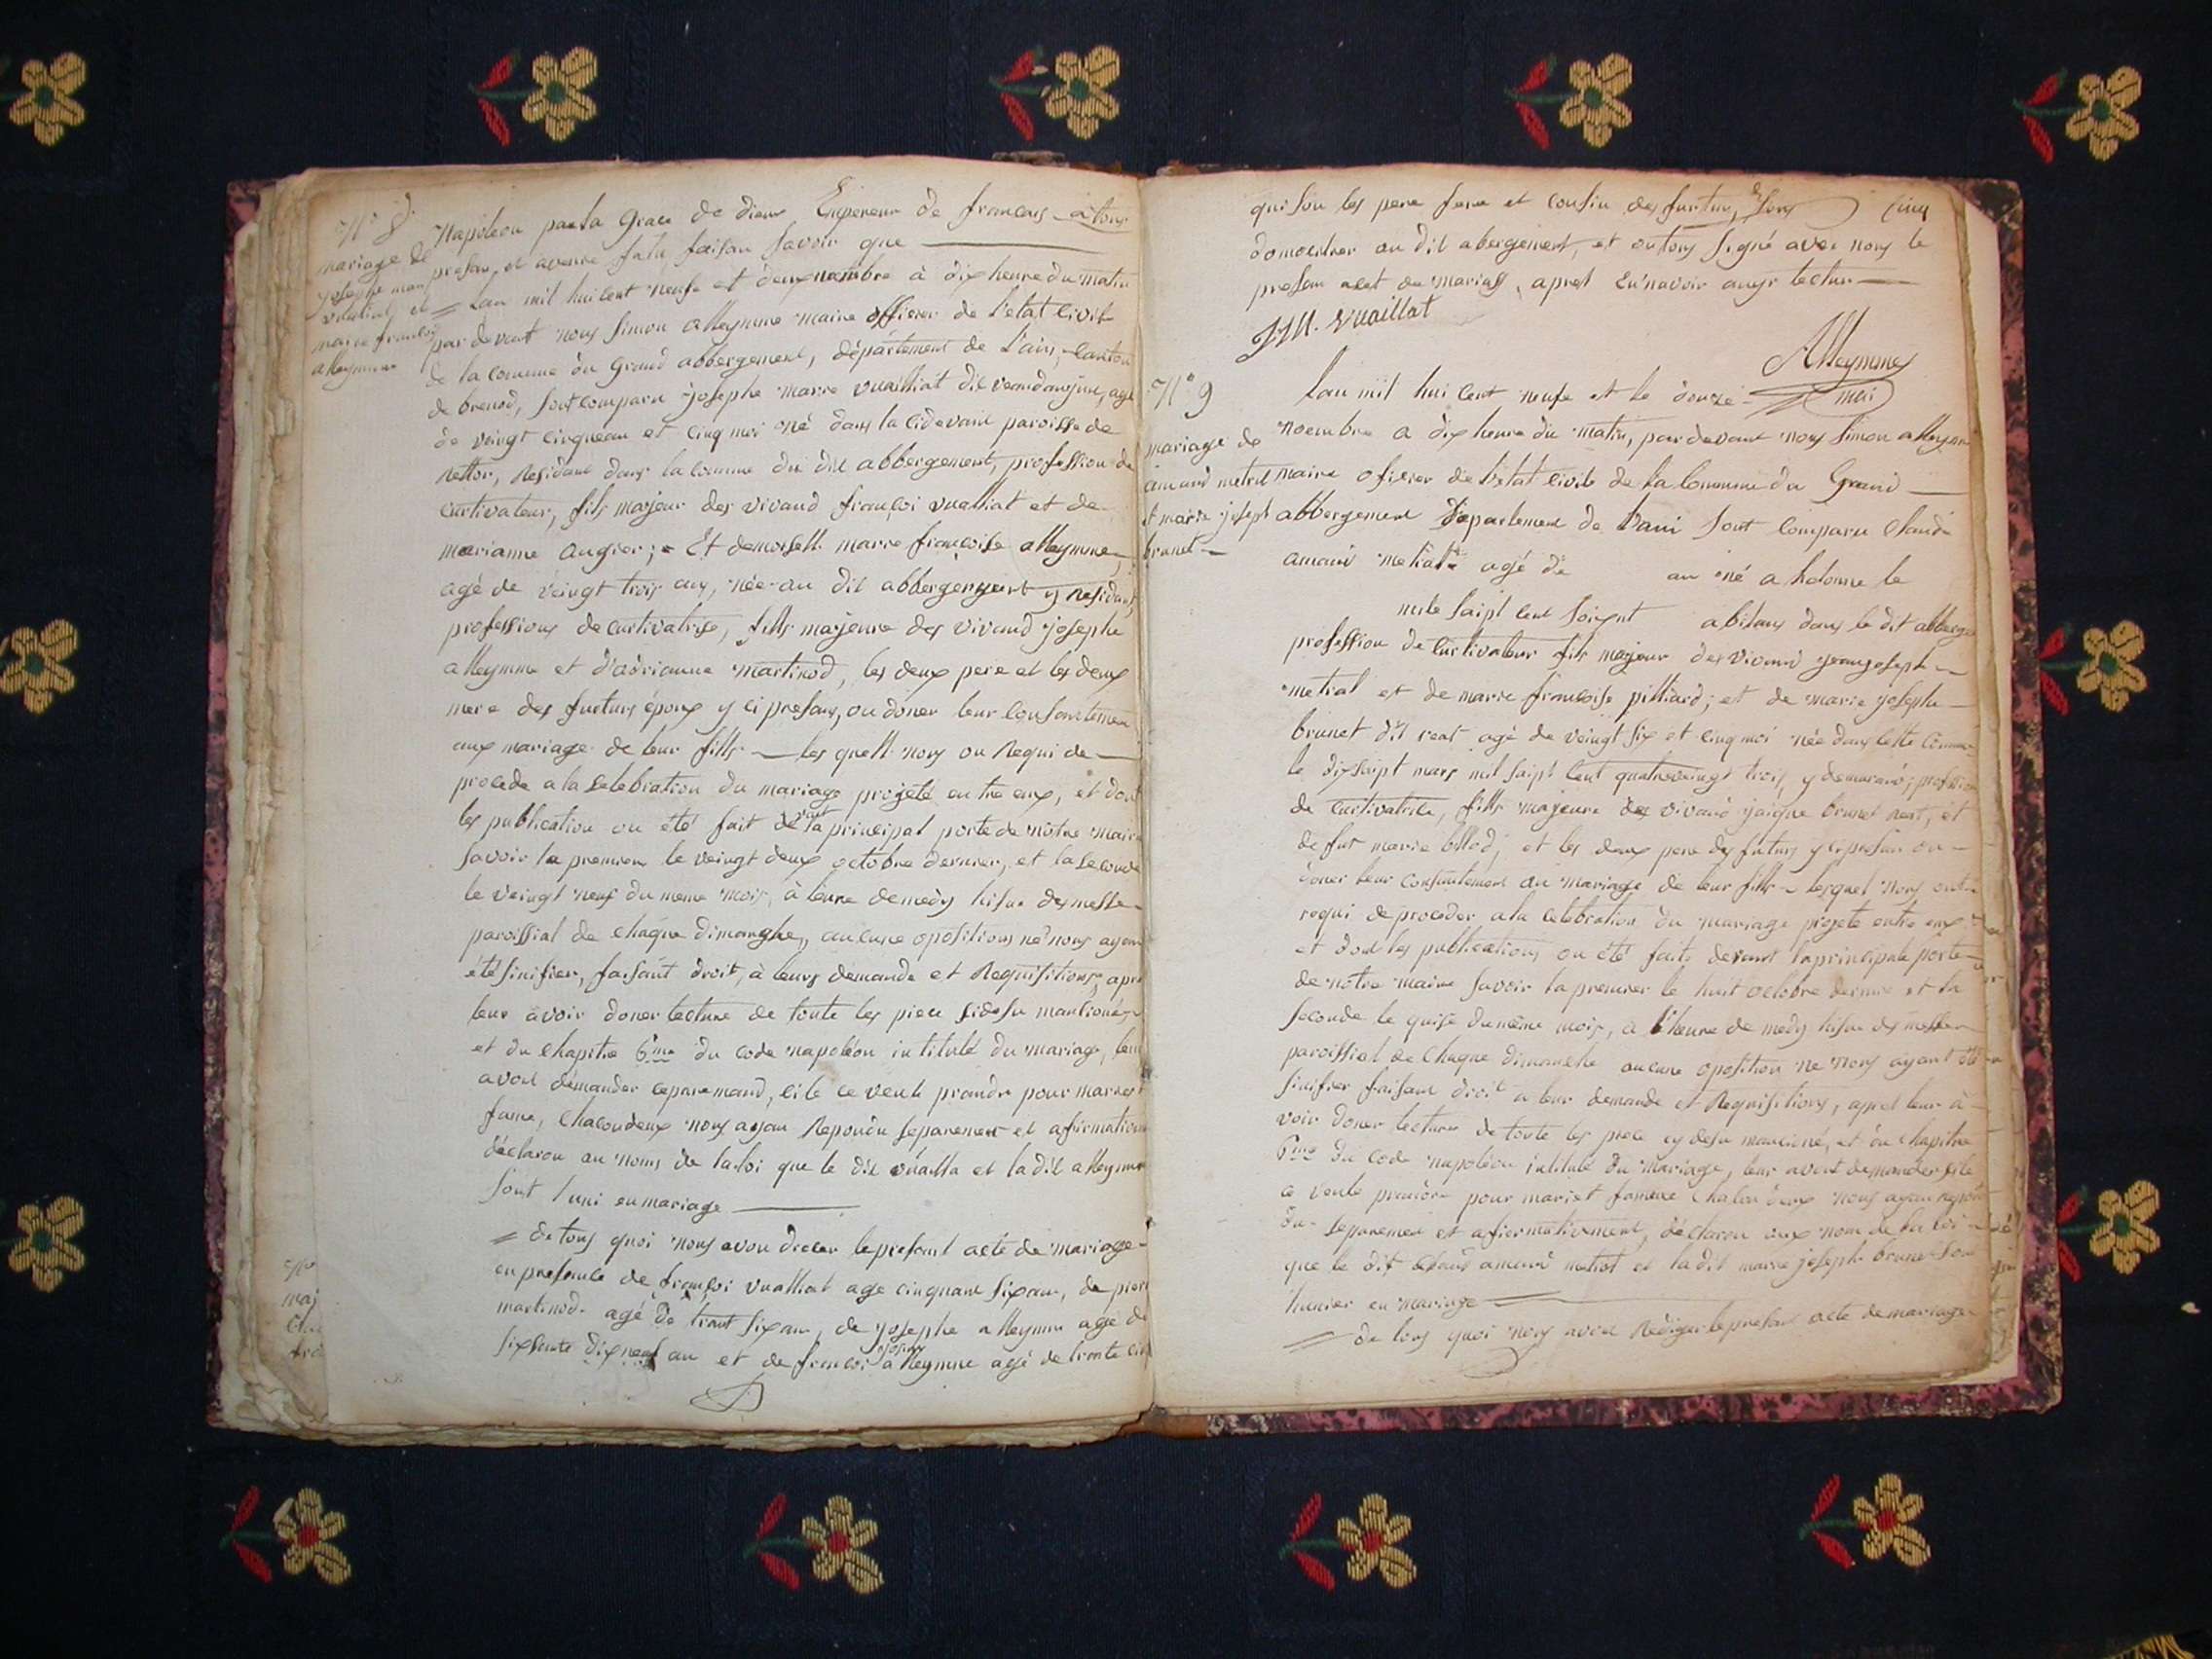 N° 8
mariage de
josephe marie
vuaillat et
marie francoise
alleymme
Napoléon par la Grace de dieux Empereur de francais a tous
presan et avenir salu faison savoir que
= Lan mil huicent neufe et deux novembre à dix heure du matin
par devent nous Simon alleymme maire officier de l'etat civil
de la comune du Grand abbergement, département de L'ain, canton
de brenod, sont comparu josephe marie vuailliat dit
de veingt cinqueau et cinq moi né dans la cidevant paroisse de
Residant dans la comune du dit abbergement, profession de
curtivateur, fils majeur des vivand françoi vualliat et de
marianne augier; Et demoiselle marie françoise alleymme
agé de veingt trois ans, née au dit abbergement y residant
professions de curtivatrise, fills majeure des vivand josephe
alleymme et d'adrianne martinod, les deux pere et les deux
mere des furturs époux y ci presans, on doner leur consantemen
aux mariage de leur fills les quells nous on Requi de
procede a la celebration du mariage projeté entre eux, et dont
les publication on été fait devant la principal porte de nôtre mairie
savoir la premiere le veingt deux octobre dernier, et la seconde
le veingt neuf du meme mois, à leure de medy hisue des messe
paroissial de chaque dimanghe, aucune opositions ne nous ayan
été sinifier, faisant droit, à leurs demande et Requisitions, apre
leur àvoir doner lecture de toute les piece sidesu mantionés
et du chapitre 6me du code napoléon intitulé du mariage, leur
avons démander ceparemand, cile ce veule prandre pour maries
fame, chacondeux nous ayan Repondu separement et afirmative
déclaron au noms de la loi que le dit vualla et la dit alleymme
sont l'uni en mariage
= de tous quoi nous avon dresser le presant acte de mariage
en presence de françoi vualliat age cinquant six ans, de pierre
martinod agé de trant six ans, de josephe alleymme agé de
sixsante dix neuf an et de francoi alleymme agé de trante cinq
qui son les pere frere et cousin des furturs, de sens cinq
domentrer au dit abergement, et on tous signé avec nous le
presan acet de mariage, apret en navoir augr lectur
J M. vuaillat
Alleymme
mai
N° 9
mariage de
amand metral
et marie joseph
brunet
Lan mil hui cent neufe et le douze
novembre a dix heure du matin, par devant nous Simon alleymme
maire oficier de l'etat civile de la Commune du Grand
abbergement département de Lain sont comparu claude
amand metrat agé de an né a hotonne le
mile saipt cent soisent abitans dans le dit abberge
profession de curtivateur fils majeur des vivand jean joseph
metral et de marie francoise pilliard; et de marie josephe
brunet dit rent agé de veingt six et cinq moi née dans cette commune
le dixsaipt mars mil saipt cent quatreveingt trois, y demeurand; profession
de curtivatrice, fills majeure des vivand jaique brunet rent, et
de fut marie billod; et les deux pere des futurs y ci presan on
doner leur consentement au mariage de leur fills lesquel nous ont
requi de proceder a la celebration du mariage projeté entre eux
et dont les publications on été faite devant la principale porte
de nôtre mairie savoir la premier le huit octobre dernier et la
seconde le quise du même mois, à l'heure de medy hisue des messe
paroissial de chaque dimanche aucune oposition ne nous ayant été
sinifier faisant droit a leur demande et Requisitions, apret leur à
voir doner lecture de toute les piece cy desu manciené, et du chapitre
6me du code napoléon intitulé du mariage, leur avont demander sile
ce veule prendre pour mariet fameme chacun deux nous ayan repon
du separemen et afiermativement, déclaron aux nom de la loi
que le dit claude amand metrat et la dit marie joseph brunet son
l'hunier en mariage
= de tous quoi nous avon Rediger le presant acte de mariage